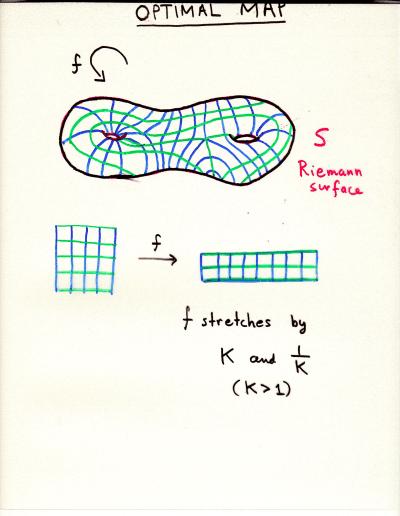 OPTIMAL MAP
f
S
Riemann
surface
f
f stretches by
K and 1/K
(K>1)